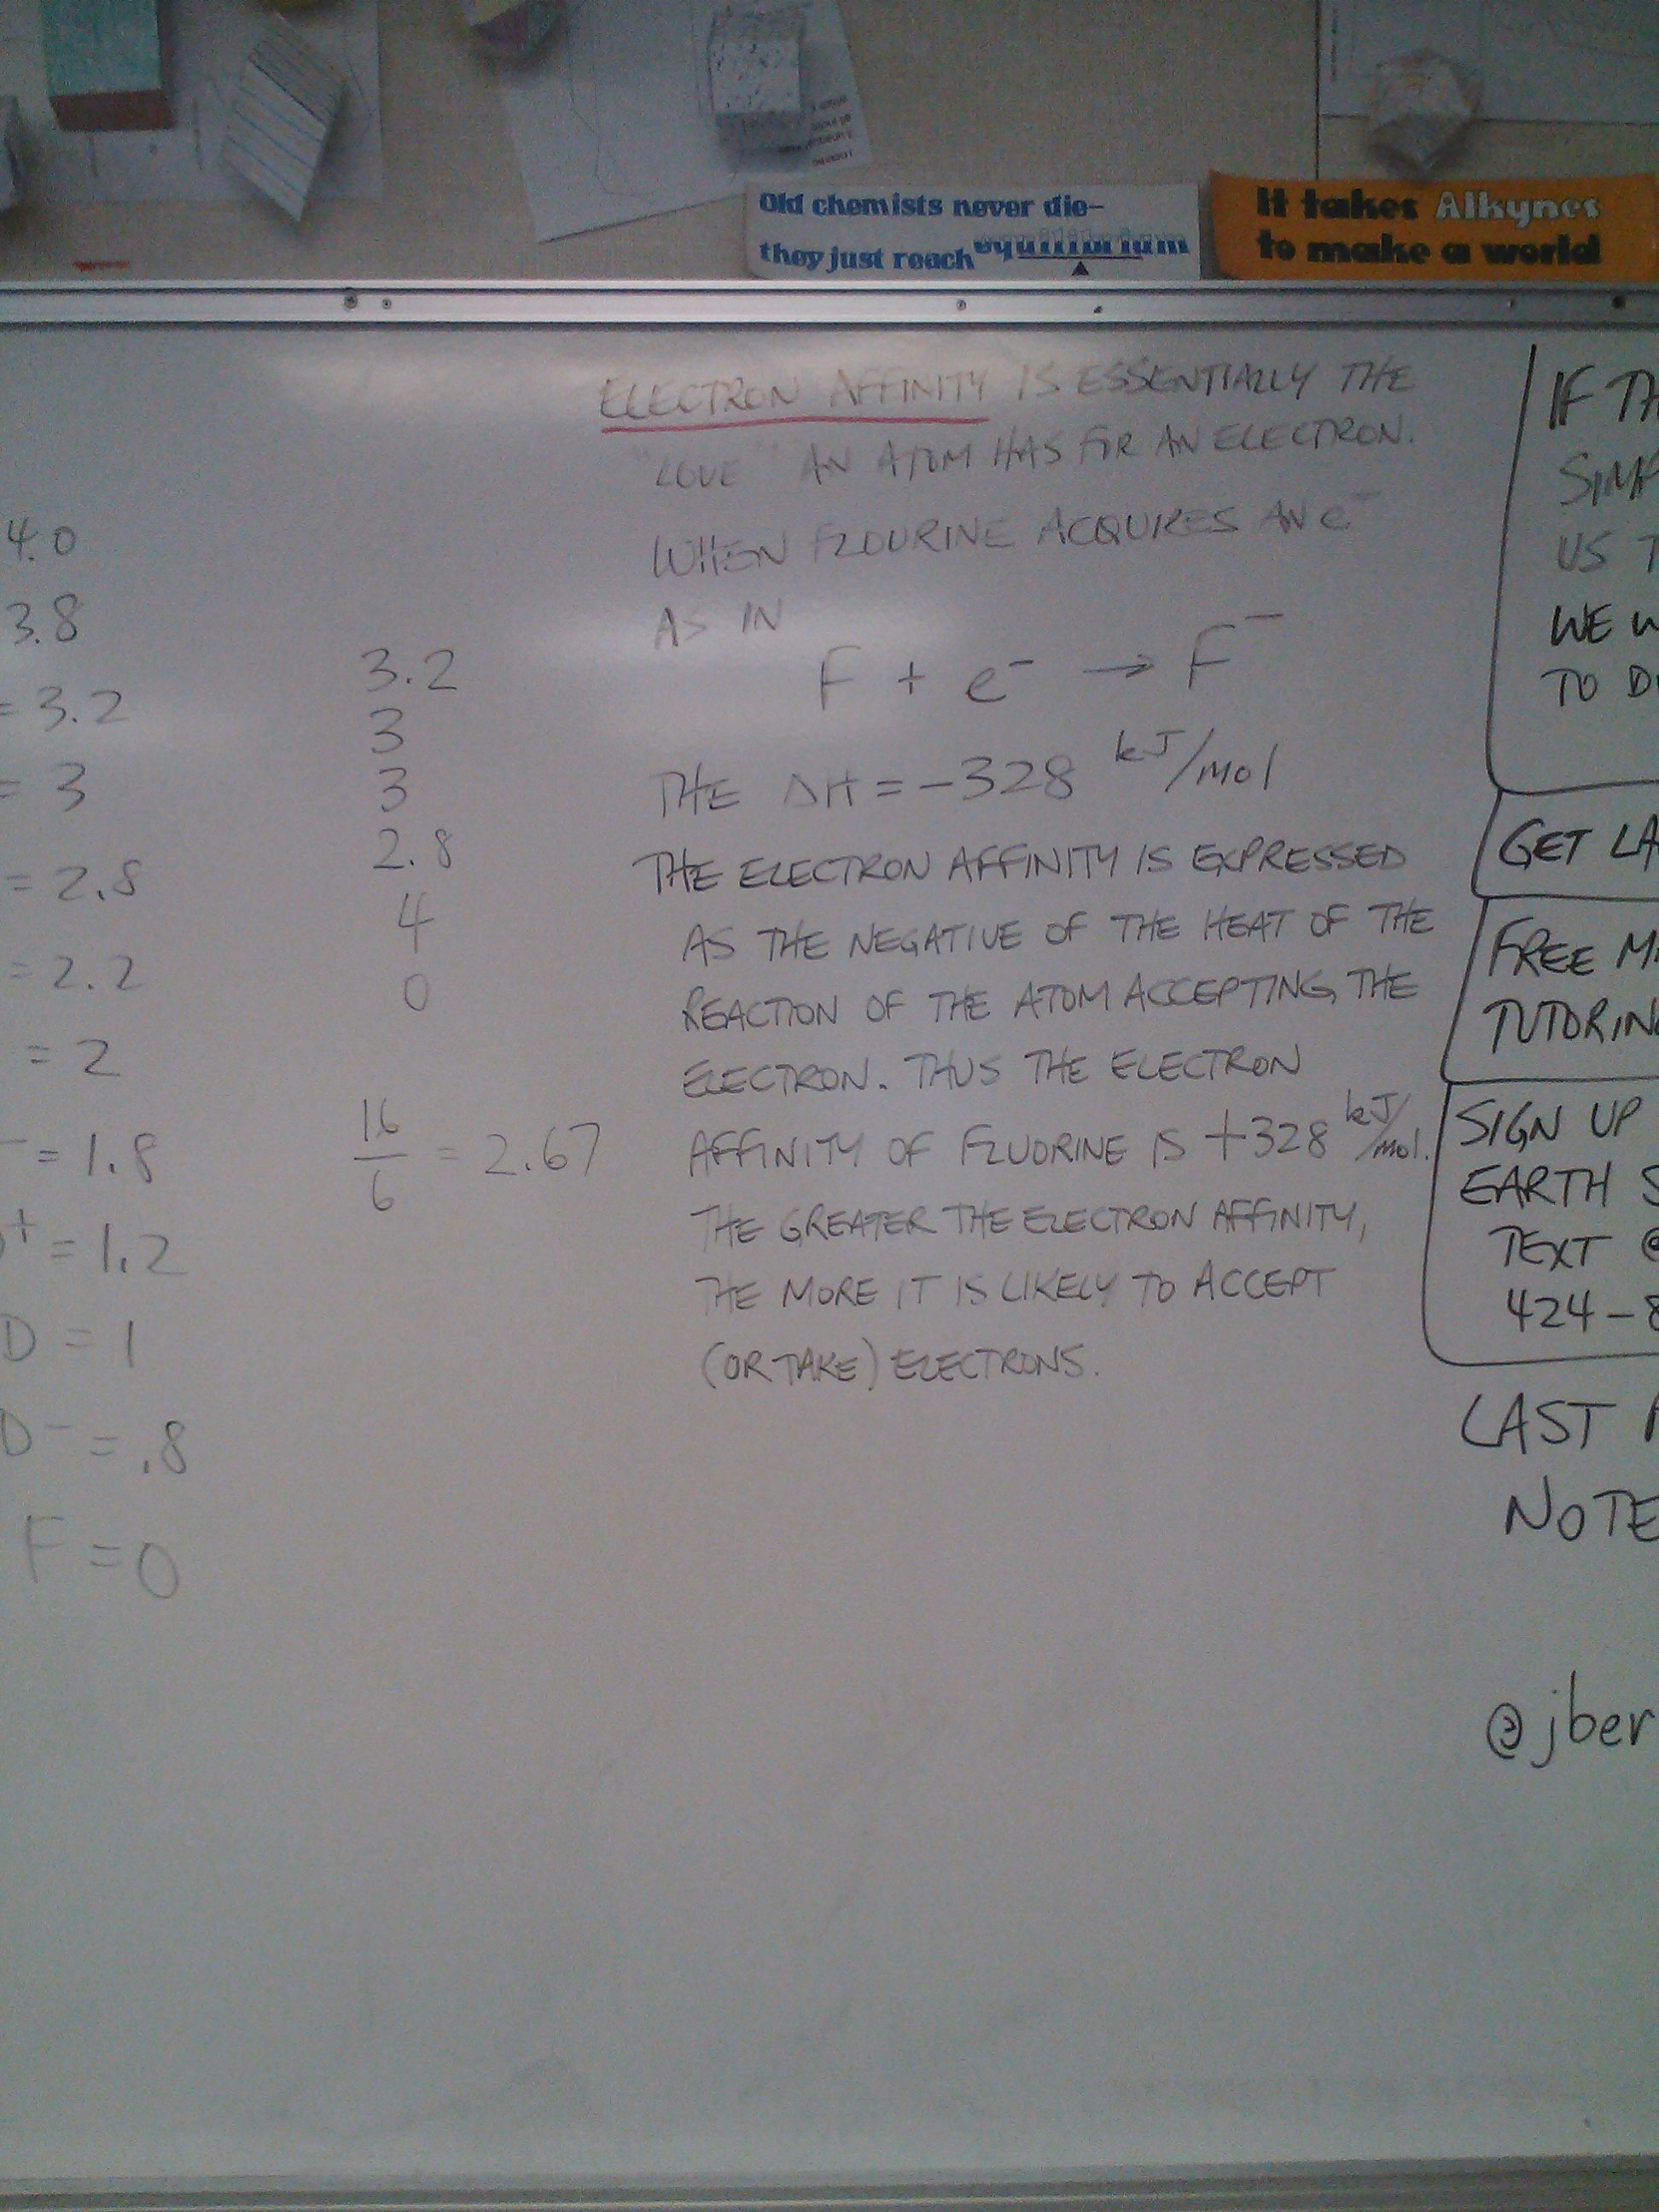 Old chemists never die-
they just reach equilibrium
It takes Alkynes
to make a world
4.0
3.8
= 3.2
= 3
= 2.8
= 2.2
= 2
- = 1.8
+ = 1.2
D = 1
D- = .8
F = 0
3.2
3
3
2.8
4
0
16/6 = 2.67
ELECTRON AFFINITY IS ESSENTIALLY THE
"LOVE" AN ATOM HAS FOR AN ELECTRON.
WHEN FLOURINE ACQUIRES AN e⁻
AS IN
F + e⁻ → F⁻
THE ΔH = -328 kJ/mol
THE ELECTRON AFFINITY IS EXPRESSED
AS THE NEGATIVE OF THE HEAT OF THE
REACTION OF THE ATOM ACCEPTING THE
ELECTRON. THUS THE ELECTRON
AFFINITY OF FLUORINE IS +328 kJ/mol.
THE GREATER THE ELECTRON AFFINITY,
THE MORE IT IS LIKELY TO ACCEPT
(OR TAKE) ELECTRONS.
IF TH
SIMP
US T
WE W
TO D
GET LA
FREE MA
TUTORIN
SIGN UP
EARTH S
TEXT @
424-8
LAST
NOTE
@jber